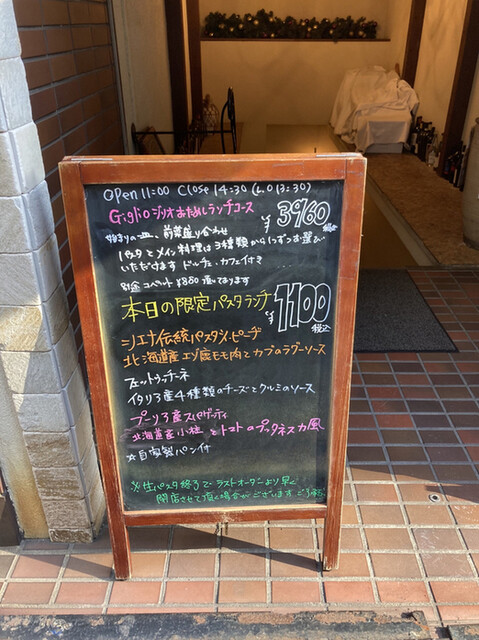 Open 11:00 Close 14:30 (L.O 13:30)
Giglio ジリオおためしランチコース
¥3960 税込
始まりの一皿、前菜盛り合わせ
パスタとメイン料理は3種類から1つずつお選び
いただけます ドルチェ・カフェ付き
別途 コペルト ¥880 頂いております
本日の限定パスタランチ
¥1100 税込
シエナ伝統パスタ〆ピーチ
北海道産エゾ鹿モモ肉とカブのラグーソース
フェットゥッチーネ
イタリア産4種類のチーズとクルミのソース
プーリア産スパゲッティ
北海道産小柱とトマトのプッタネスカ風
☆自家製パン付
※生パスタ終了で ラストオーダーより早く
閉店させて頂く場合がございます